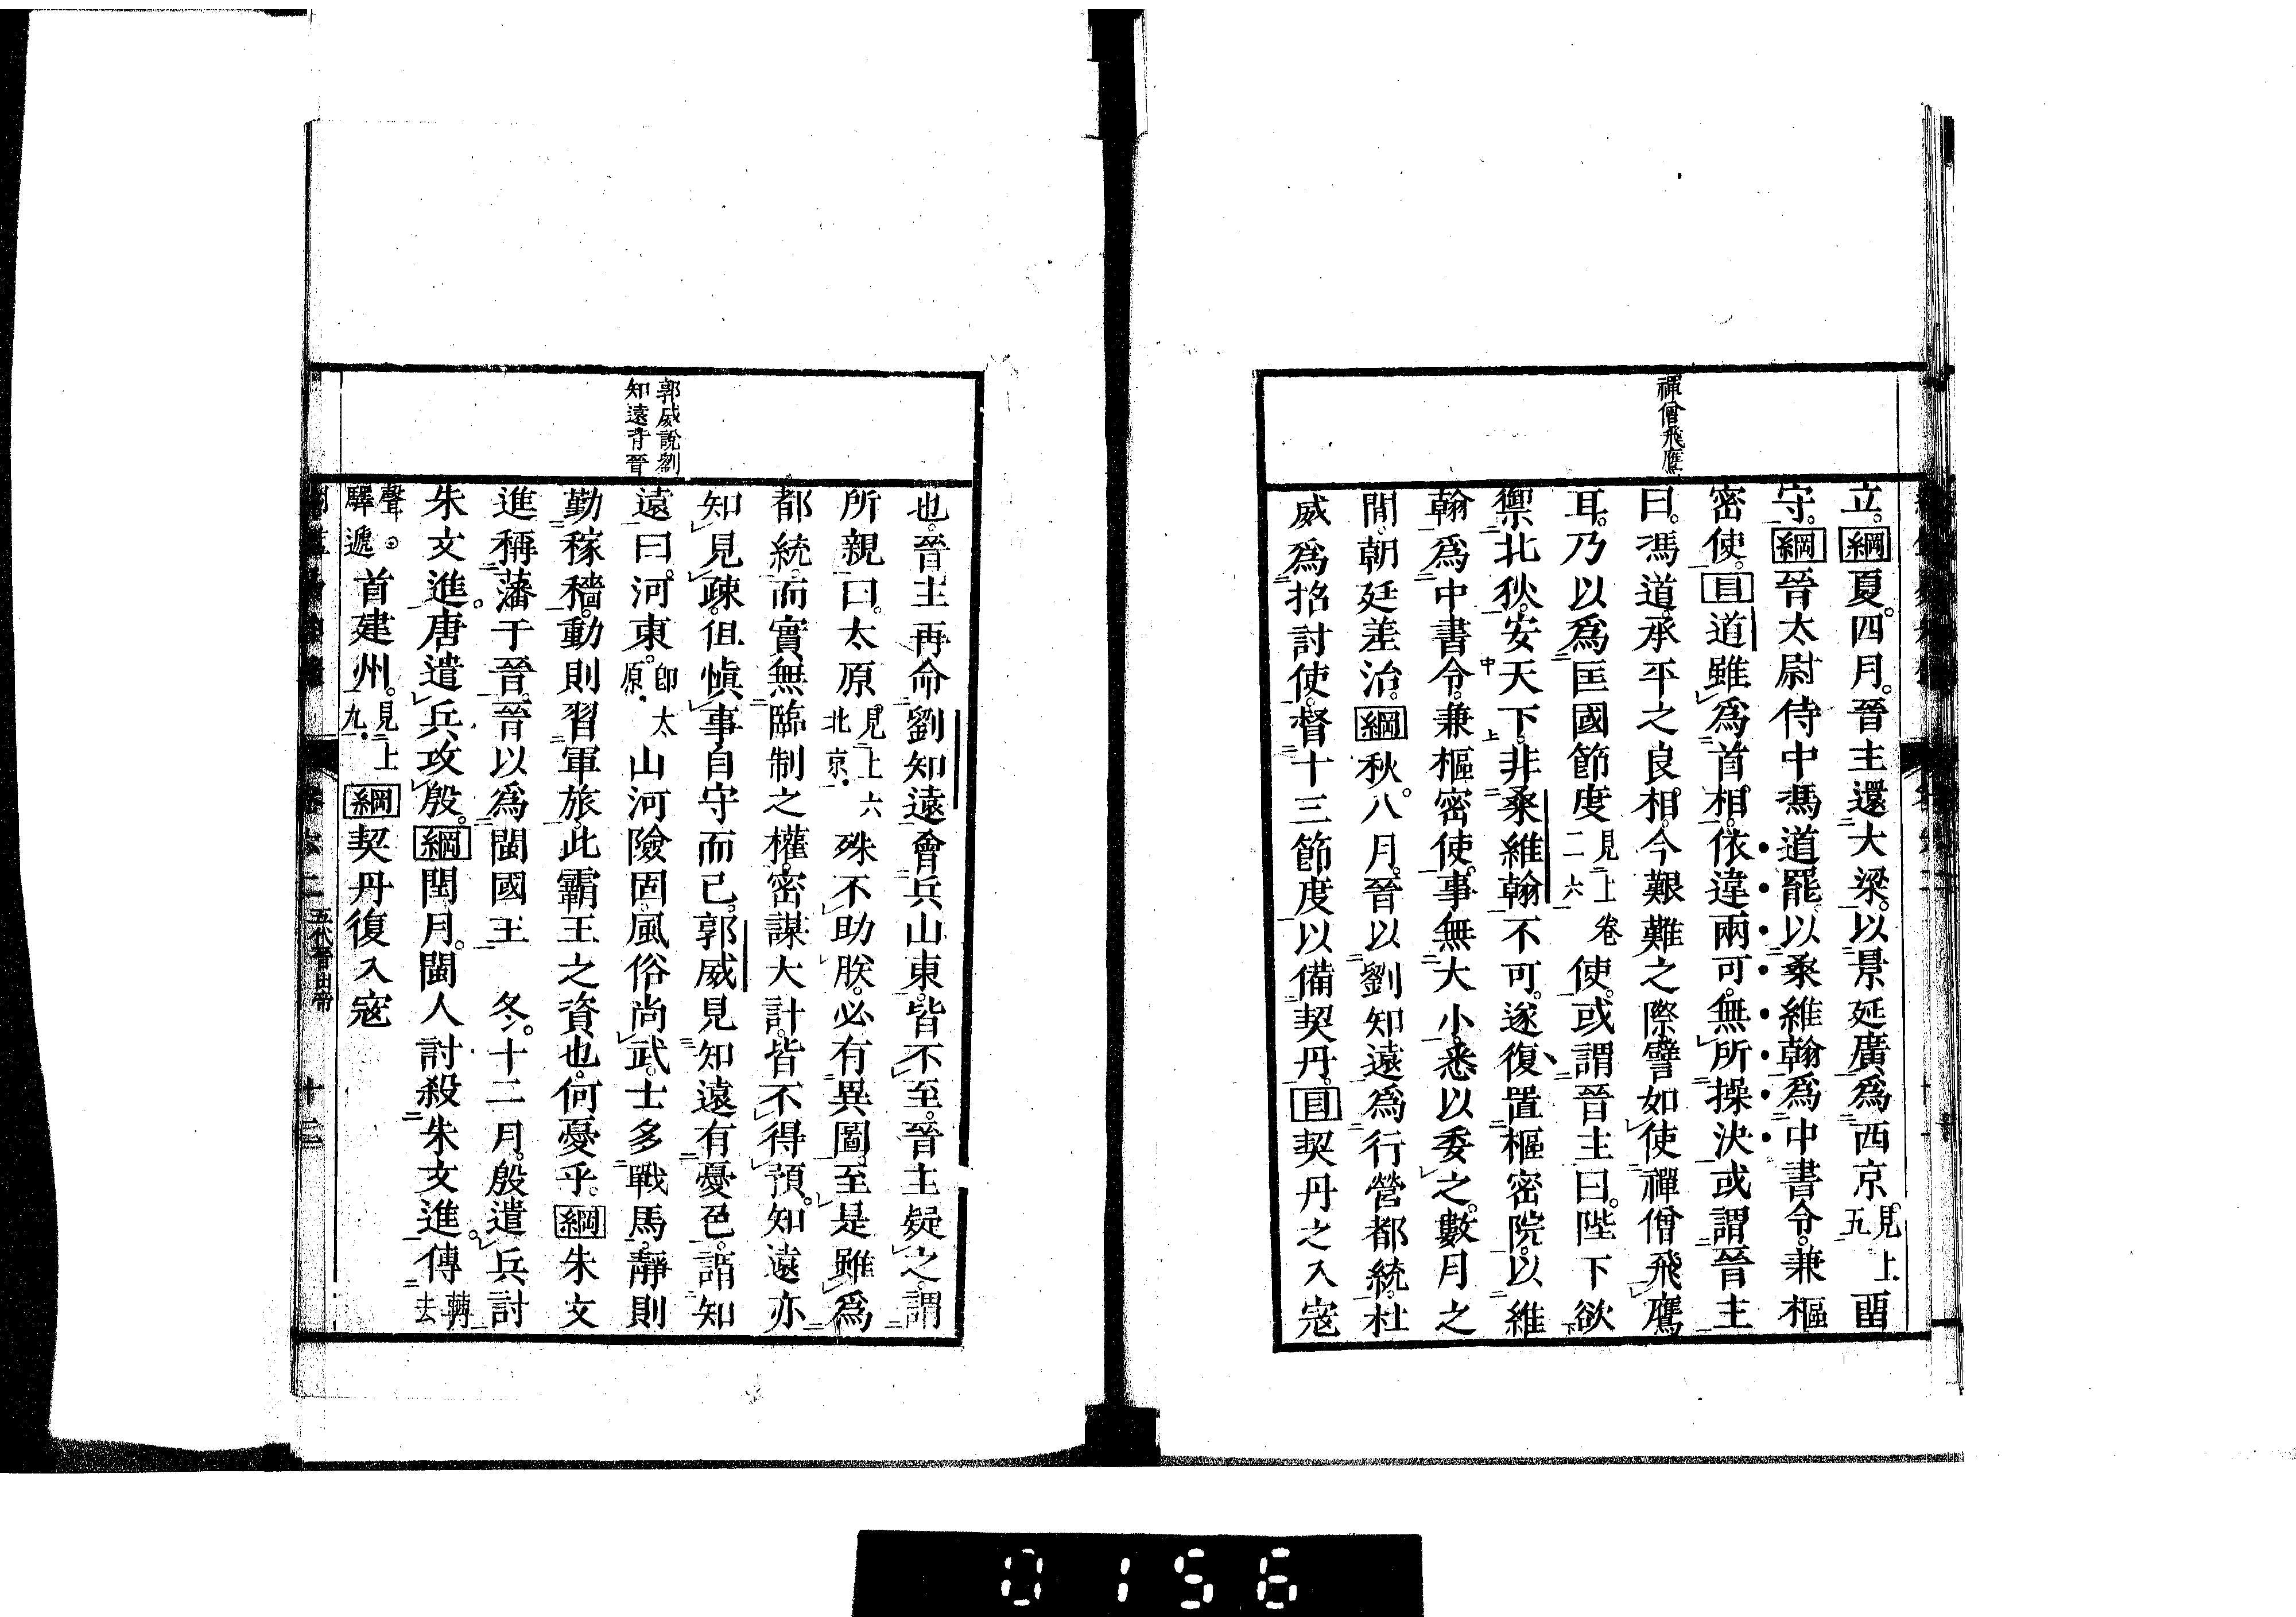 禪僧飛鷹
立。綱夏。四月。晉主還大梁。以景延廣爲西京。見上五留
守。綱晉太尉侍中馮道罷。以桑維翰爲中書令。兼樞
密使。目道雖爲首相。依違兩可。無所操決。或謂晉主
曰。馮道。承平之良相。今艱難之際。譬如使禪僧飛鷹
耳。乃以爲匡國節度見上卷二六使。或謂晉主曰。陛下欲
禦北狄。安天下。非桑維翰不可。遂復置樞密院。以維
翰爲中書令。兼樞密使。事無大小。悉以委之。數月之
間。朝廷差治。綱秋。八月。晉以劉知遠爲行營都統。杜
威爲招討使。督十三節度以備契丹。目契丹之入寇
郭威說劉
知遠背晉
也。晉主再命劉知遠會兵山東。皆不至。晉主疑之。謂
所親曰。太原。見上六北京殊不助朕。必有異圖。至是雖爲
都統。而實無臨制之權。密謀大計。皆不得預。知遠亦
知見疎。但愼事自守而已。郭威見知遠有憂色。謂知
遠曰。河東。卽太原山河險固。風俗尚武。士多戰馬。靜則
勤稼穡。動則習軍旅。此霸王之資也。何憂乎。綱朱文
進稱藩于晉。晉以爲閩國王 冬。十二月。殷遣兵討
朱文進。唐遣兵攻殷。綱閏月。閩人討殺朱文進。傳轉去
聲。驛遞首建州。見上九綱契丹復入寇
五代晉出帝
十三
0156